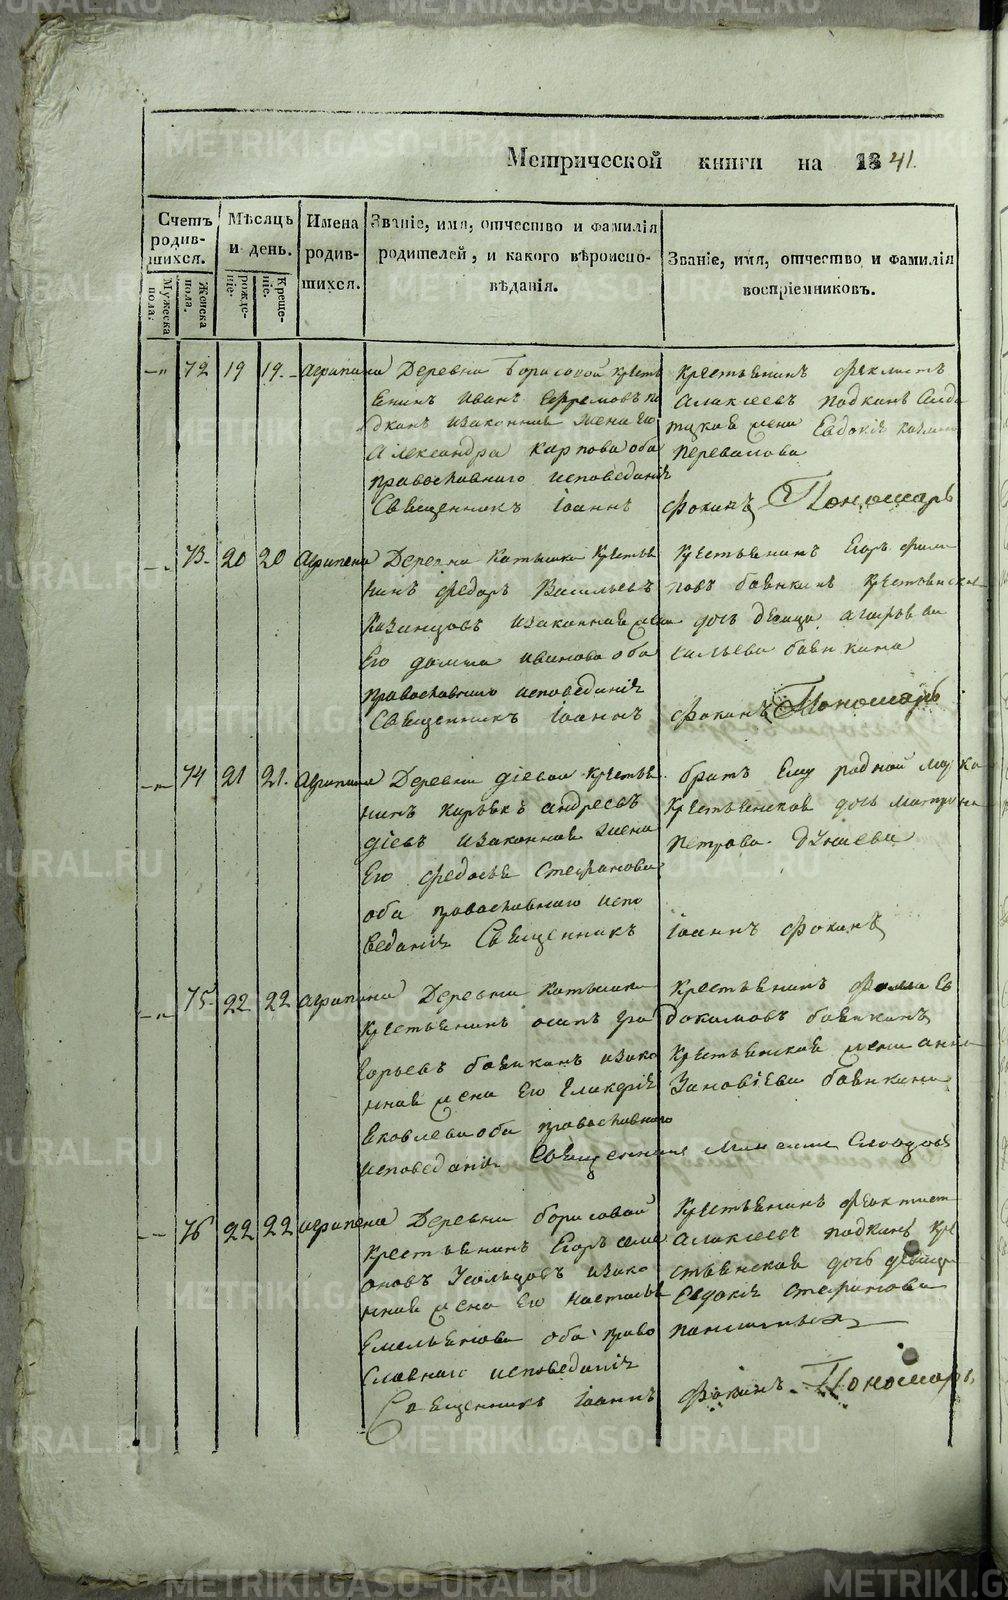 Метрической книги на 1841.
Счетъ родив-
шихся.
Мужеска пола.
Женска пола.
Мѣсяцъ и день.
рожде-
ніе.
Креще-
ніе.
Имена родив-
шихся.
Званіе, имя, отчество и фамилія
родителей, и какого вѣроиспо-
вѣданія.
Званіе, имя, отчество и фамилія
воспріемниковъ.
72 19 19. Агрипина Деревни Борисовой крестъ
енинъ Иванъ Ефремовъ по
дкинъ изаконная жена Его
Александра Карпова оба
православнаго исповеданія
Священникъ Іоаннъ Фокинъ Пономарь
крестьенинъ Феклистъ
Алексеевъ подкинъ Салда
тская жена Евдокія
Перевалова
73. 20 20 Агрипена Деревни Катышки Крестье
нинъ Федоръ Васильевъ
Казанцовъ изаконная жена
Его Домна Иванова оба
православнаго исповеданія
Священникъ Іоаннъ Фокинъ Пономарь
крестьенинъ Егоръ Фили
повъ баенкинъ крестьенская
дочь девица
сильева баенкина
74 21 21. Агрипина Деревни діевой крестье
нинъ андреевъ
діевъ изаконная жена
Его Федосья Стефанова
оба православнаго испо
веданія Священникъ Іоаннъ Фокинъ
братъ Ему родной
Крестьенская дочь Матрона
Петрова Дунаева
75. 22 22 Агрипина Деревни Катышки
крестьенинъ осипъ гри
горьевъ баенкинъ изако
нная жена Его Гликерія
Яковлева оба православнаго
исповеданія Священникъ
крестьенинъ Фома Ев
докимовъ баенкинъ
крестьенская жена анна
Зиновіева баенкина
76 22 22 Агрипена Деревни борисовой
крестьенинъ Егоръ семе
оновъ Усольцовъ изако
нная жена Его Наталья
Емельенова оба право
славнаго исповеданія
Священникъ Іоаннъ Фокинъ Пономарь
Крестьенинъ Феоктист
Алексеевъ подкинъ кре
стьенская дочь девица
Евдокія Стефанова
METRIKI.GASO-URAL.RU